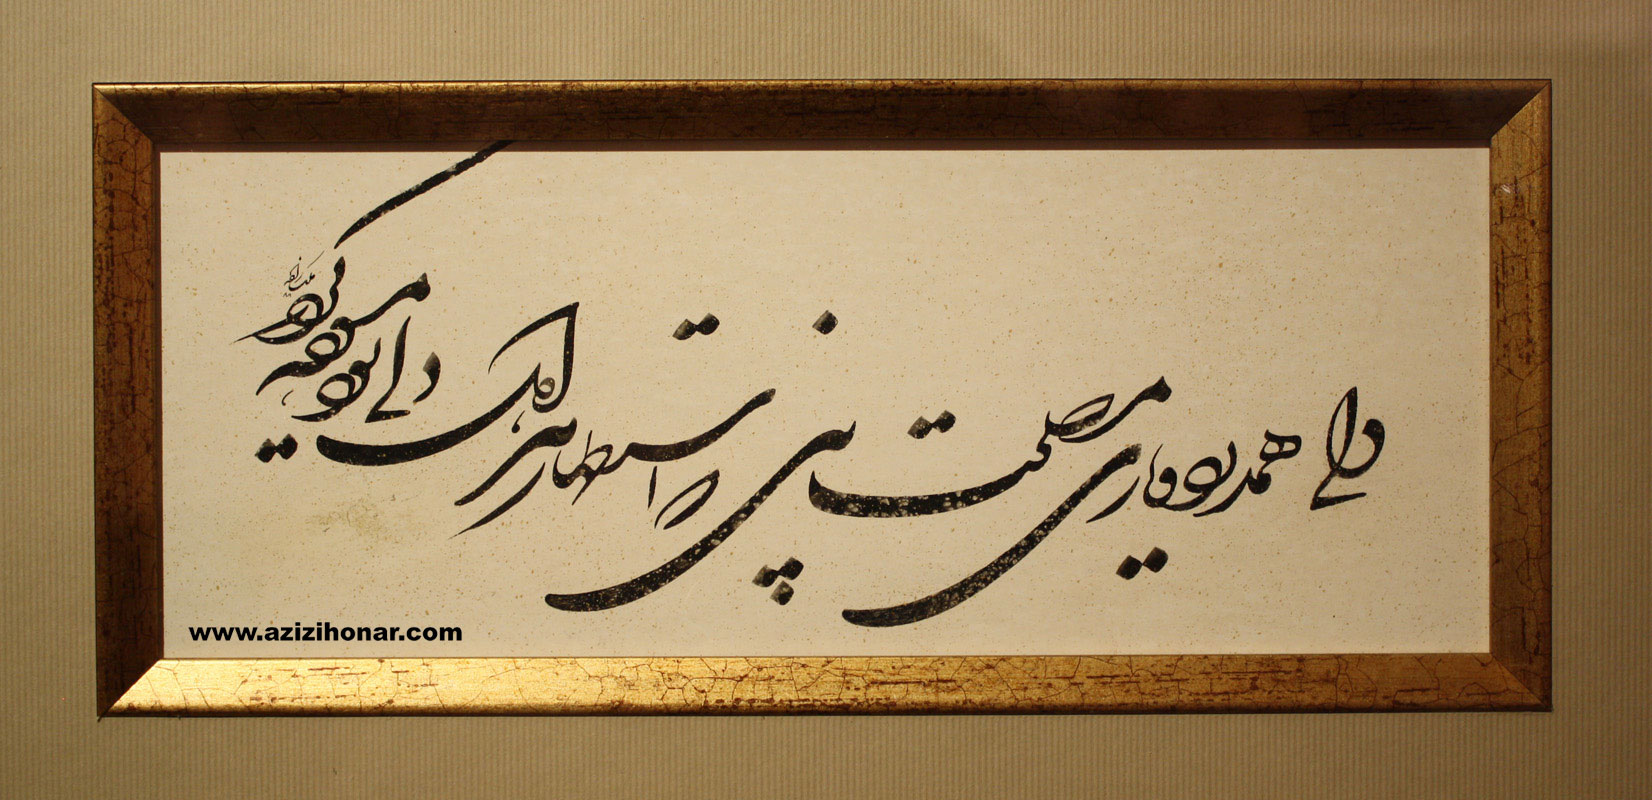 دلی همدرد و یاری مصلحت بینی
استظهار هر اهل دلی بود
www.azizihonar.com